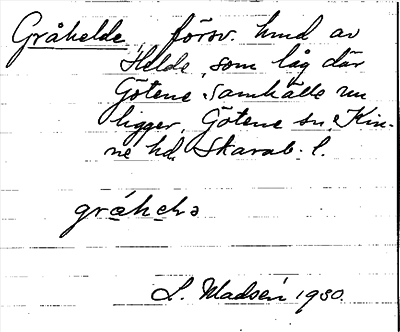 Gråhelde, försv. hmd av
Helde, som låg där
Götene samhälle nu
ligger, Götene sn, Kin-
ne hd, Skarab. l.
L. Madsén 1980.